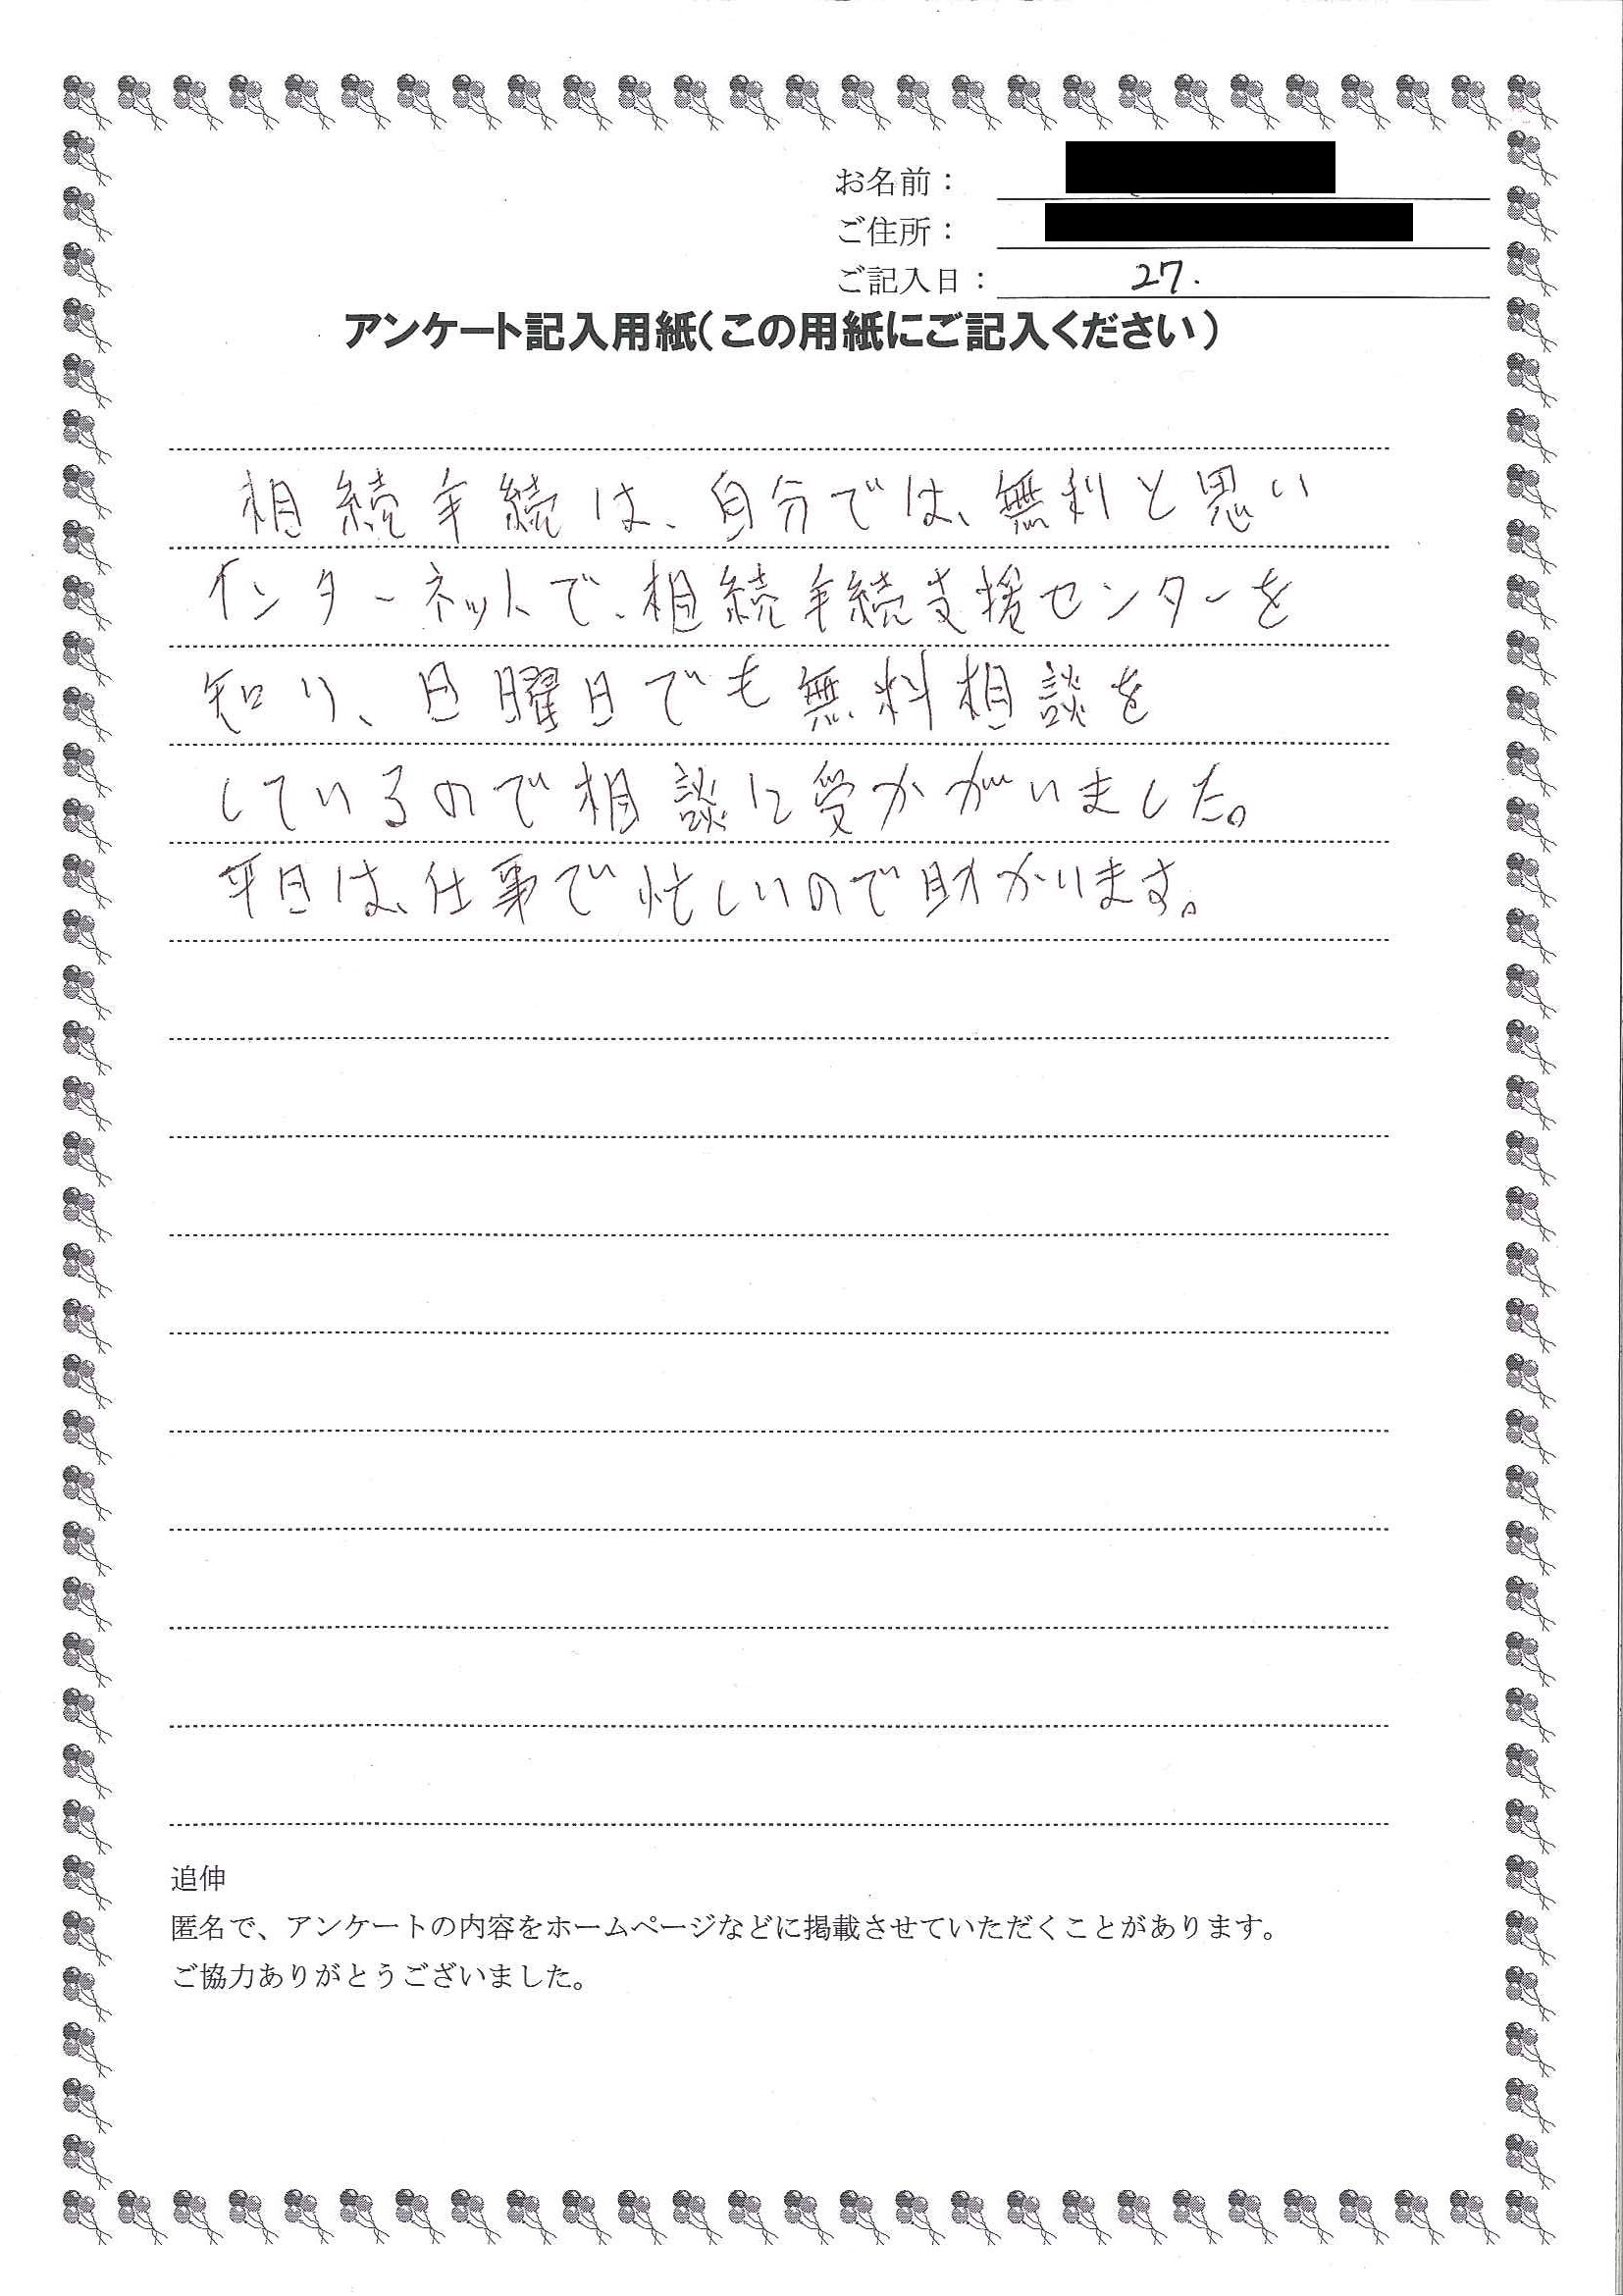 お名前：
ご住所：
ご記入日： 27.
アンケート記入用紙（この用紙にご記入ください）
相続手続は、自分では、無利と思い
インターネットで、相続手続支援センターを
知り、日曜日でも無料相談を
しているので相談に受かがいました。
平日は、仕事で忙しいので財かります。
追伸
匿名で、アンケートの内容をホームページなどに掲載させていただくことがあります。
ご協力ありがとうございました。